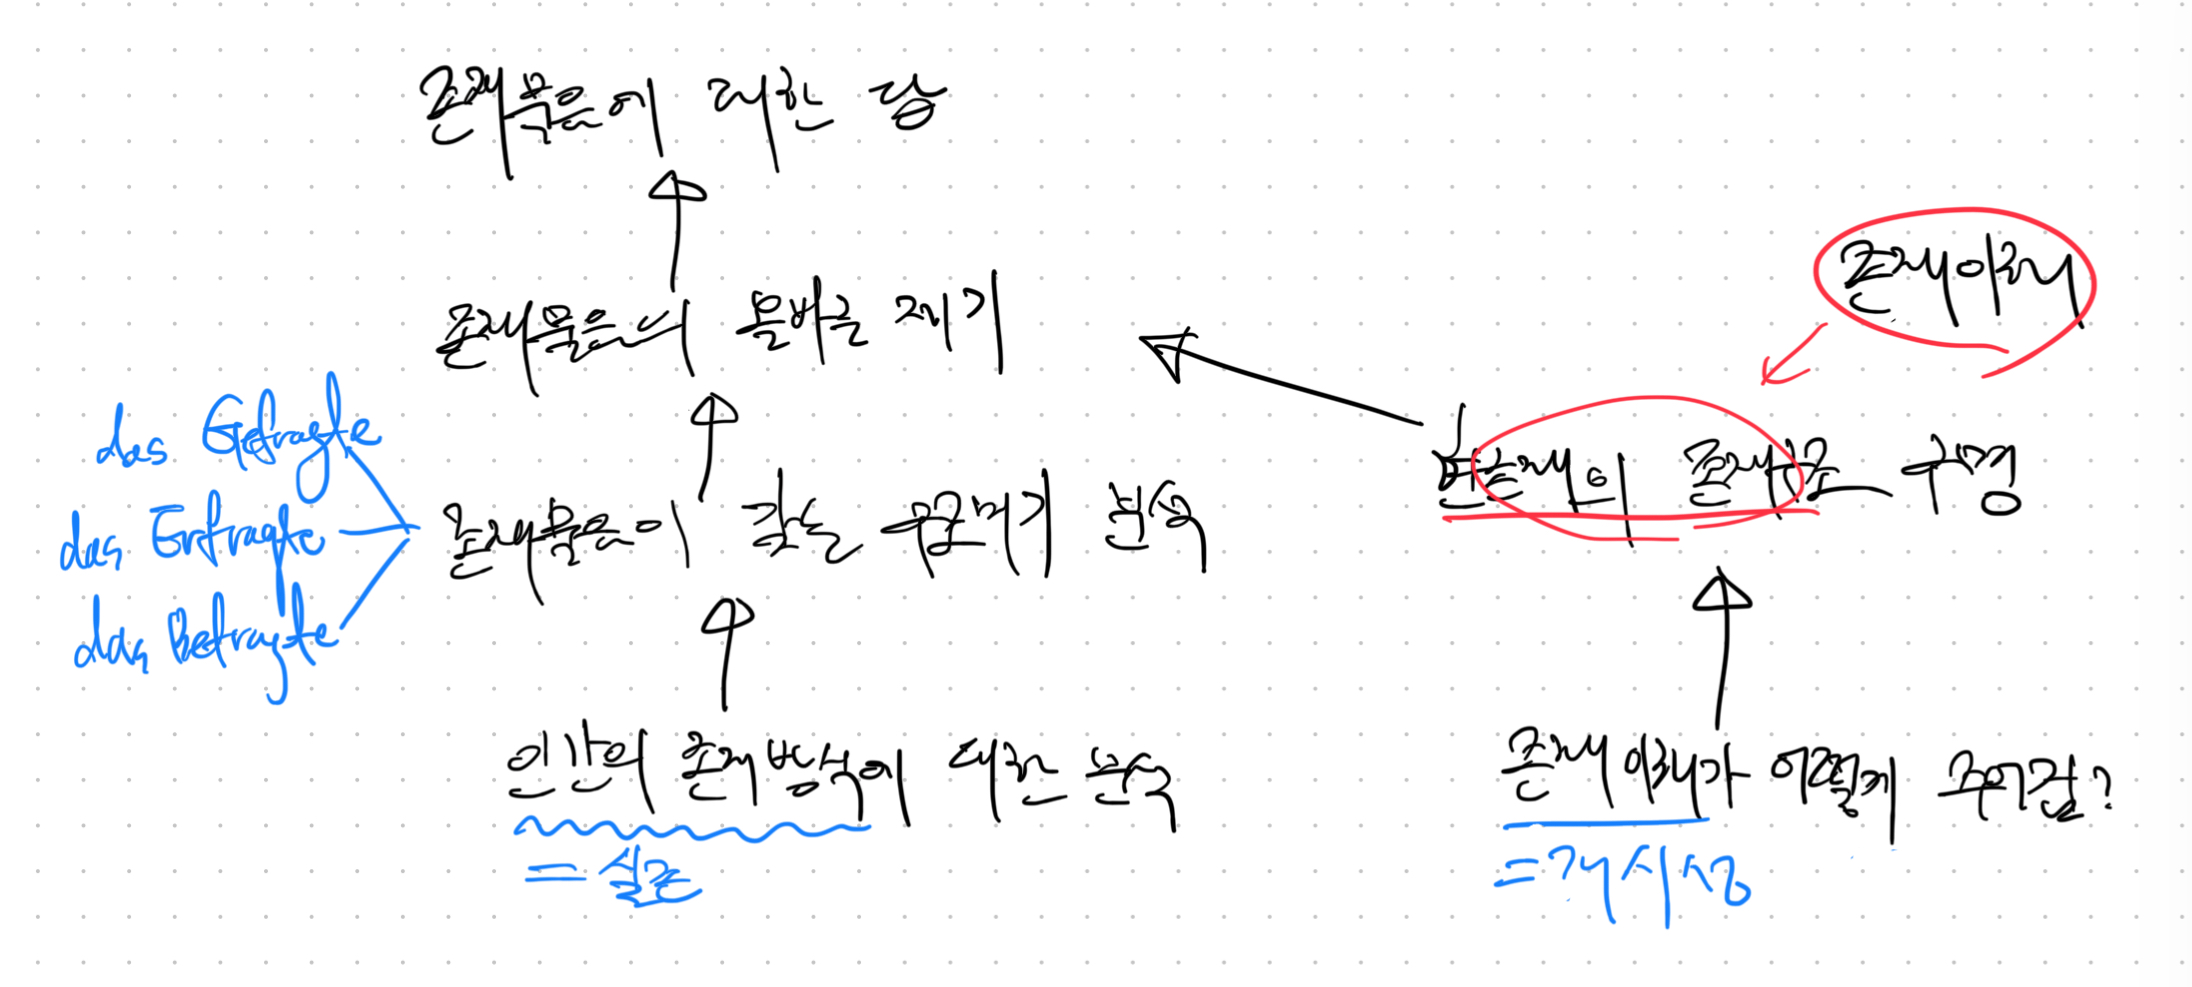 존재물음에 대한 답
존재물음의 올바른 제기
das Gefragte
das Erfragte
das Befragte
존재물음이 갖는 구조계기 분석
인간의 존재방식에 대한 분석
= 실존
존재이해
현존재의 존재구조 규명
존재이해가 어떻게 주어짐?
= 개시성